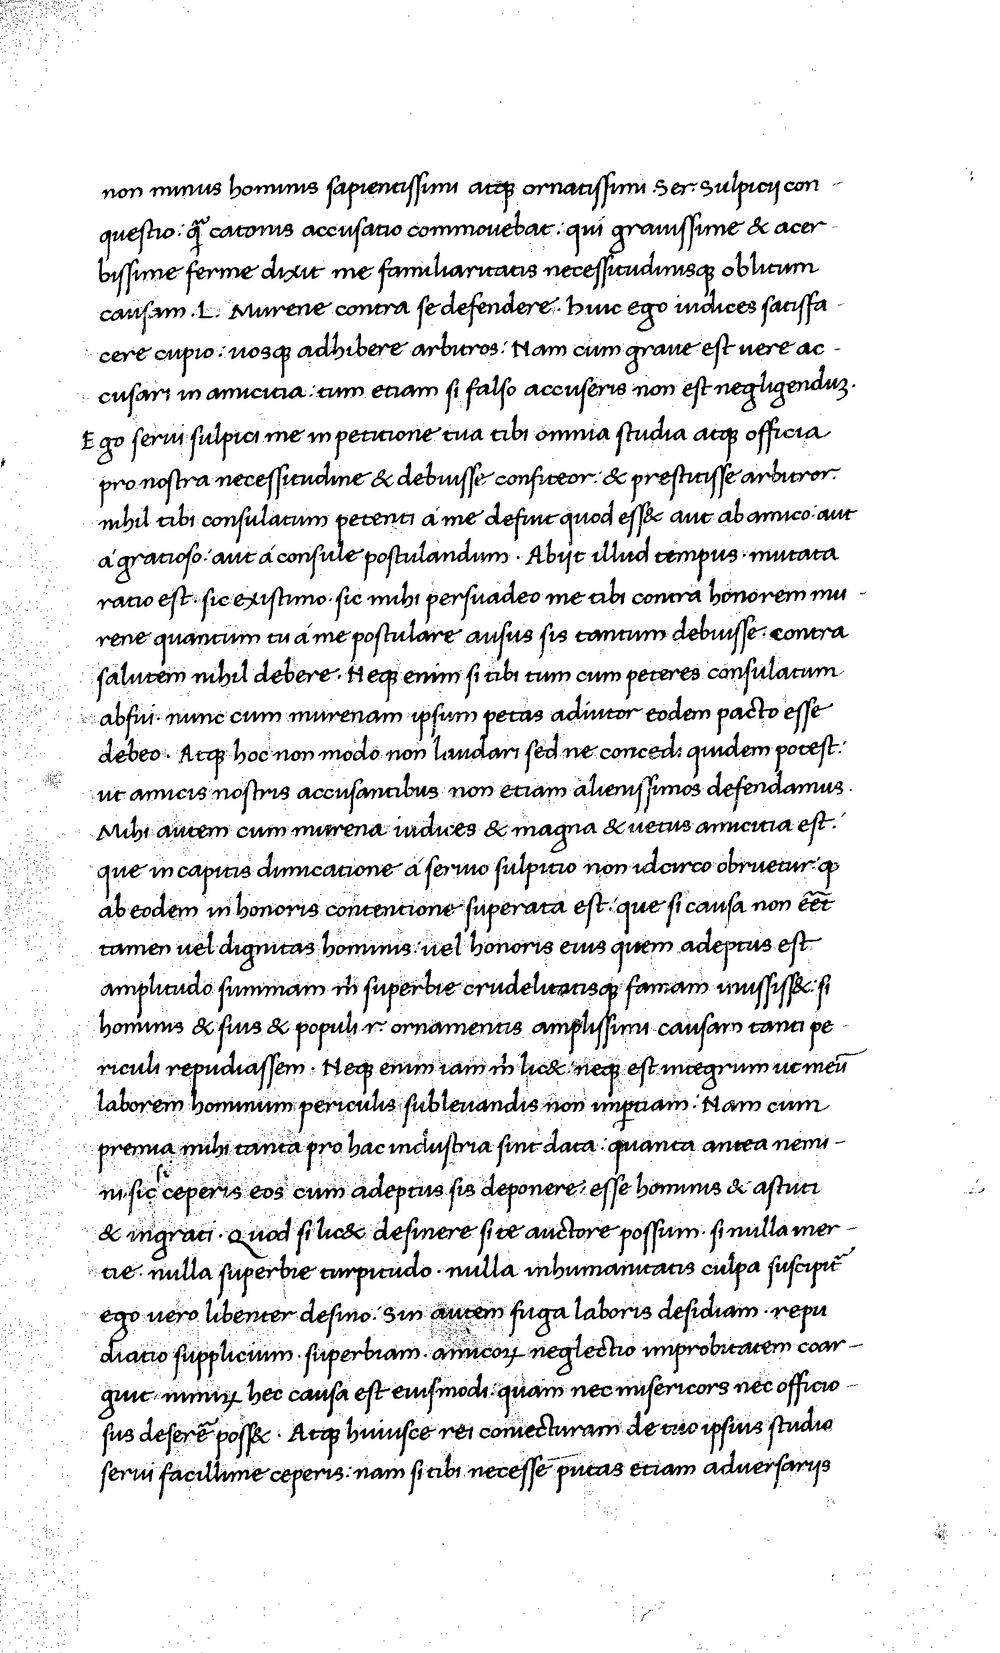 non minus hominis sapientissimi atqꝫ ornatissimi Ser. Sulpicij con-
questio: q̃ catonis accusatio commouebat: qui grauissime & acer-
bissime ferme dixit me familiaritatis necessitudinisqꝫ oblitum
causam .L. Murene contra se defendere. Huic ego iudices satisfa-
cere cupio: uosqꝫ adhibere arbitros: Nam cum graue est uere ac-
cusari in amicitia: tum etiam si falso accuseris non est negligenduꝫ.
Ego serui sulpici me in petitione tua tibi omnia studia atqꝫ officia
pro nostra necessitudine & debuisse confiteor: & prestitisse arbitror.
nihil tibi consulatum petenti á me defuit quod ess& aut ab amico: aut
á gratioso: aut á consule postulandum. Abijt illud tempus. mutata
ratio est. sic existimo. sic mihi persuadeo me tibi contra honorem mu-
rene quantum tu á me postulare ausus sis tantum debuisse. contra
salutem nihil debere. Neqꝫ enim si tibi tum cum peteres consulatum
abfui. nunc cum murenam ipsum petas adiutor eodem pacto esse
debeo. Atqꝫ hoc non modo non laudari sed ne concedi quidem potest:
ut amicis nostris accusantibus non etiam alienissimos defendamus.
Mihi autem cum murena iudices & magna & uetus amicitia est:
que in capitis dimicatione á seruio sulpitio non idcirco obruetur: ꝙ
ab eodem in honoris contentione superata est. que si causa non eēt
tamen uel dignitas hominis: uel honoris eius quem adeptus est
amplitudo summam m̄ superbie crudelitatisqꝫ famam inussiss&: si
hominis & suis & populi r. ornamentis amplissimi causam tanti pe-
riculi repudiassem. Neqꝫ enim iam m̄ lic& neqꝫ est integrum ut meū
laborem hominum periculis subleuandis non imꝑtiam. Nam cum
premia mihi tanta pro hac industria sint data. quanta antea nemi-
ni. sic ceperis eos cum adeptus sis deponere. esse hominis & astuti
& ingrati. Quod si lic& desinere si te auctore possum. si nulla iner-
tie. nulla superbie turpitudo. nulla inhumanitatis culpa suscipit᷑
ego uero libenter desino. Sin autem fuga laboris desidiam. repu
diatio supplicium. superbiam. amicoꝝ neglectio improbitatem coar-
guit. nimiꝝ hec causa est eiusmodi. quam nec misericors nec officio-
sus deserē poss&. Atqꝫ huiusce rei coniecturam de tuo ipsius studio
serui facillime ceperis: nam si tibi necesse putas etiam aduersarijs